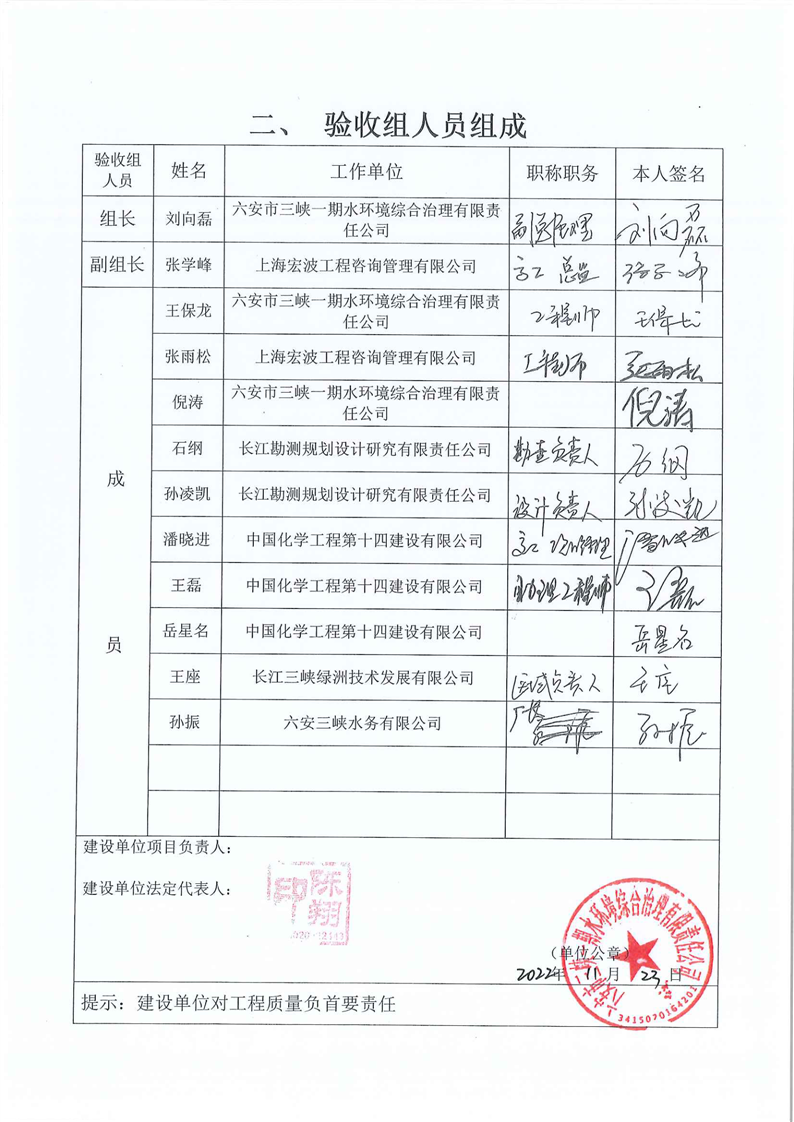 二、 验收组人员组成
验收组
人员
姓名
工作单位
职称职务
本人签名
组长
刘向磊
六安市三峡一期水环境综合治理有限责
任公司
副总经理
刘向磊
副组长
张学峰
上海宏波工程咨询管理有限公司
高工 总监
成
员
王保龙
六安市三峡一期水环境综合治理有限责
任公司
工程师
王保龙
张雨松
上海宏波工程咨询管理有限公司
工程师
张雨松
倪涛
六安市三峡一期水环境综合治理有限责
任公司
倪涛
石纲
长江勘测规划设计研究有限责任公司
勘查负责人
石纲
孙凌凯
长江勘测规划设计研究有限责任公司
设计负责人
孙凌凯
潘晓进
中国化学工程第十四建设有限公司
潘晓进
王磊
中国化学工程第十四建设有限公司
助理工程师
王磊
岳星名
中国化学工程第十四建设有限公司
岳星名
王座
长江三峡绿洲技术发展有限公司
区域负责人
王座
孙振
六安三峡水务有限公司
厂长
孙振
建设单位项目负责人：
建设单位法定代表人：
陈翔
印
（单位公章）
2022年 11 月 23 日
六安市三峡一期水环境综合治理有限责任公司
3415070164201
提示：建设单位对工程质量负首要责任